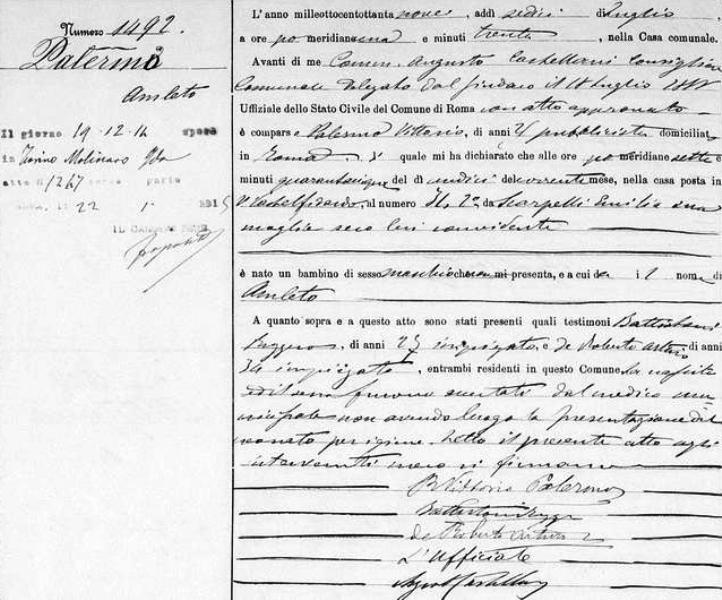 Numero 1492.
Palermo
Amleto
Il giorno 19-12-14 sposò
in Torino Molinaro
atto N 1247 parte
22 1 1915
L'anno milleottocentottanta nove, addì sedici di Luglio,
a ore po meridiane una e minuti trenta, nella Casa comunale.
Avanti di me Comm. Augusto Castellani Consigliere
Comunale delegato dal sindaco il Luglio
Uffiziale dello Stato Civile del Comune di Roma con atto approvato
è comparso Palermo Vittorio, di anni pubblicista domiciliato
in Roma, il quale mi ha dichiarato che alle ore po meridiane sette e
minuti quarantacinque del dì undici del corrente mese, nella casa posta in
V. Castelfidardo, al numero da Scarpelli Emilia sua
moglie seco lui convivente
è nato un bambino di sesso maschile che non mi presenta, e a cui dà il nome di
Amleto
A quanto sopra e a questo atto sono stati presenti quali testimoni Battistoni
Ruggero, di anni impiegato, e de Roberto Arturo di anni
34 impiegato, entrambi residenti in questo Comune. La nascita
ed il sesso furono accertati dal medico mu-
nicipale non avendo luogo la presentazione del
neonato per igiene. Letto il presente atto agli
intervenuti meco si firmano
Vittorio Palermo
Battistoni
de Roberto Arturo
L'Uffiziale
Castellani